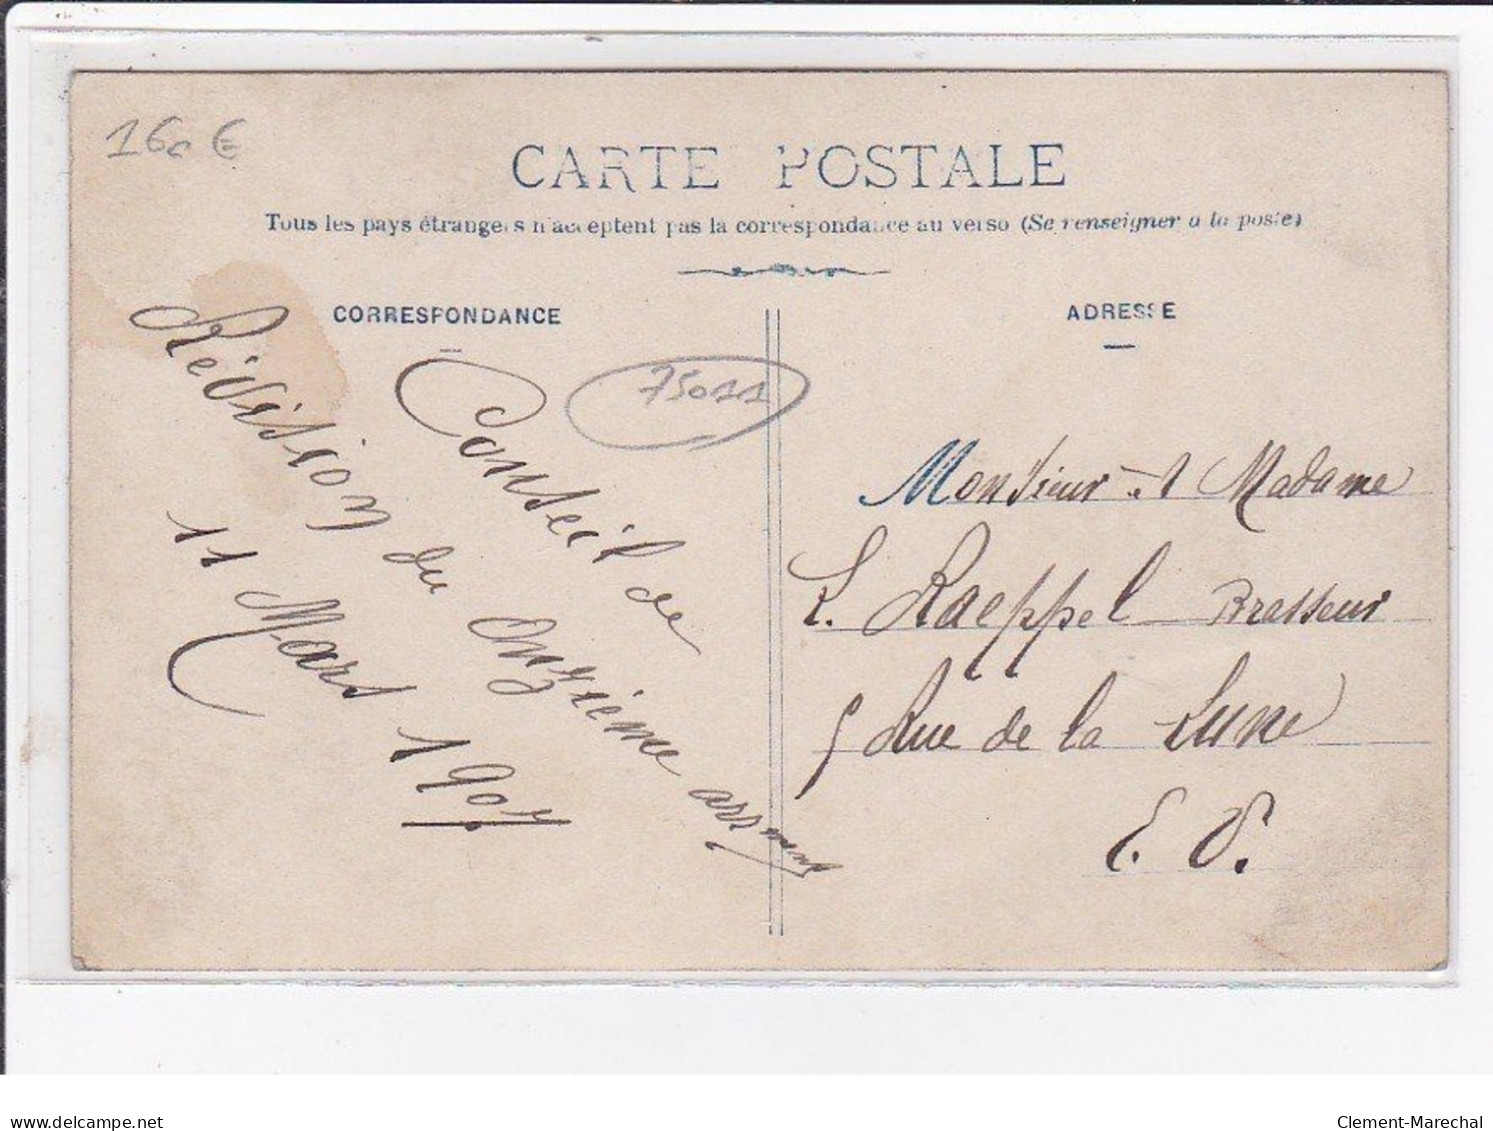 160 €
CARTE POSTALE
Tous les pays étrangers n'acceptent pas la correspondance au verso (Se renseigner à la poste)
CORRESPONDANCE
Conseil de
Révision du Onzième arrs ment
11 Mars 1907
75011
ADRESSE
Monsieur et Madame
L. Raeppel Brasseur
5 Rue de la Lune
E. V.
delcampe.net
Clement-Marechal